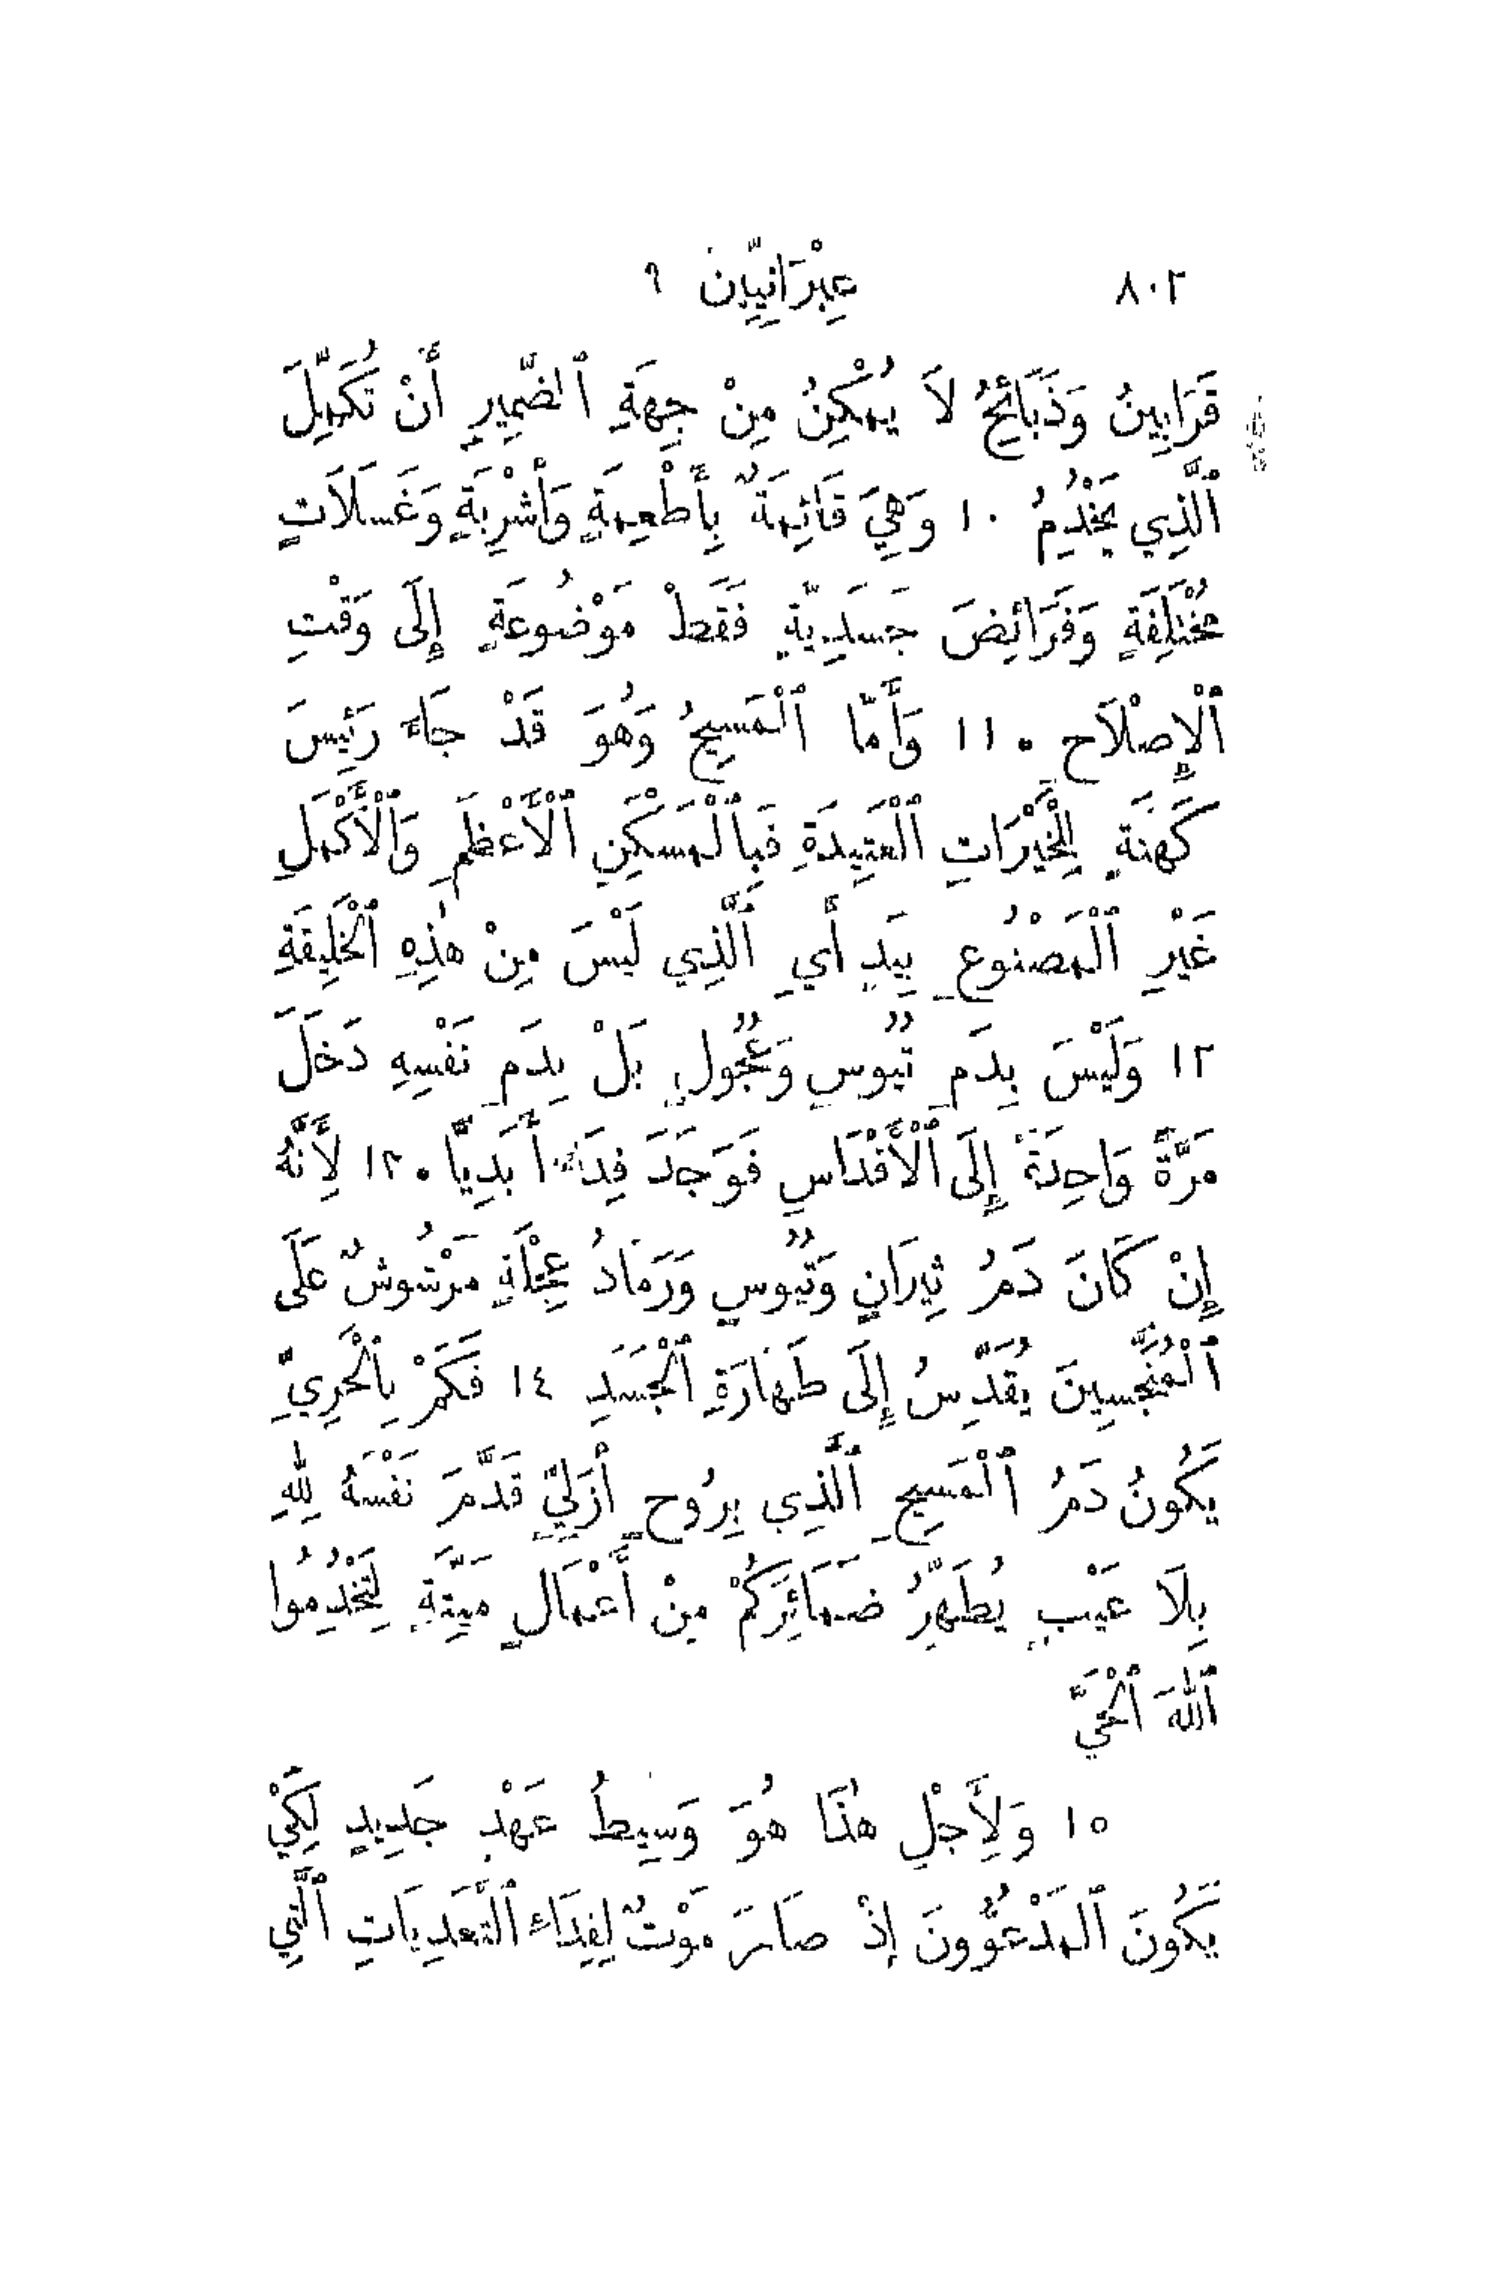 ٨٠٢ عِبْرَانِيِّينَ ٩
قَرَابِينُ وَذَبَائِحُ لاَ يُمْكِنُ مِنْ جِهَةِ ٱلضَّمِيرِ أَنْ تُكَمِّلَ
ٱلَّذِي يَخْدُِمُ ١٠ وَهِيَ قَائِمَةٌ بِأَطْعِمَةٍ وَأَشْرِبَةٍ وَغَسَلَاتٍ
مُخْتَلِفَةٍ وَفَرَائِضَ جَسَدِيَّةٍ فَقَطْ مَوْضُوعَةٍ إِلَى وَقْتِ
ٱلْإِصْلَاحِ ٠ ١١ وَأَمَّا ٱلْمَسِيحُ وَهُوَ قَدْ جَاءَ رَئِيسَ
كَهَنَةٍ لِلْخَيْرَاتِ ٱلْعَتِيدَةِ فَبِٱلْمَسْكَِنِ ٱلْأَعْظَمِ وَٱلْأَكْمَلِ
غَيْرِ ٱلْمَصْنُوعِ بِيَدٍ أَيِ ٱلَّذِي لَيْسَ مِنْ هٰذِهِ ٱلْخَلِيقَةِ
١٢ وَلَيْسَ بِدَمِ تُيُوسٍ وَعُجُولٍ بَلْ بِدَمِ نَفْسِهِ دَخَلَ
مَرَّةً وَاحِدَةً إِلَى ٱلْأَقْدَاسِ فَوَجَدَ فِدَاءً أَبَدِيًّا ٠ ١٣ لِأَنَّهُ
إِنْ كَانَ دَمُ ثِيرَانٍ وَتُيُوسٍ وَرَمَادُ عِجْلَةٍ مَرْشُوشٌ عَلَى
ٱلْمُنَجَّسِينَ يُقَدِّسُ إِلَى طَهَارَةِ ٱلْجَسَدِ ١٤ فَكَمْ بِٱلْحَرِيِّ
يَكُونُ دَمُ ٱلْمَسِيحِ ٱلَّذِي بِرُوحٍ أَزَلِيٍّ قَدَّمَ نَفْسَهُ لِلّٰهِ
بِلَا عَيْبٍ يُطَهِّرُ ضَمَائِرَكُمْ مِنْ أَعْمَالٍ مَيِّتَةٍ لِتَخْدُِمُوا
ٱللّٰهَ ٱلْحَيَّ
١٥ وَلِأَجْلِ هٰذَا هُوَ وَسِيطُ عَهْدٍ جَدِيدٍ لِكَيْ
يَكُونَ ٱلْمَدْعُوُّونَ إِذْ صَارَ مَوْتٌ لِفِدَاءِ ٱلتَّعَدِيَاتِ ٱلَّتِي